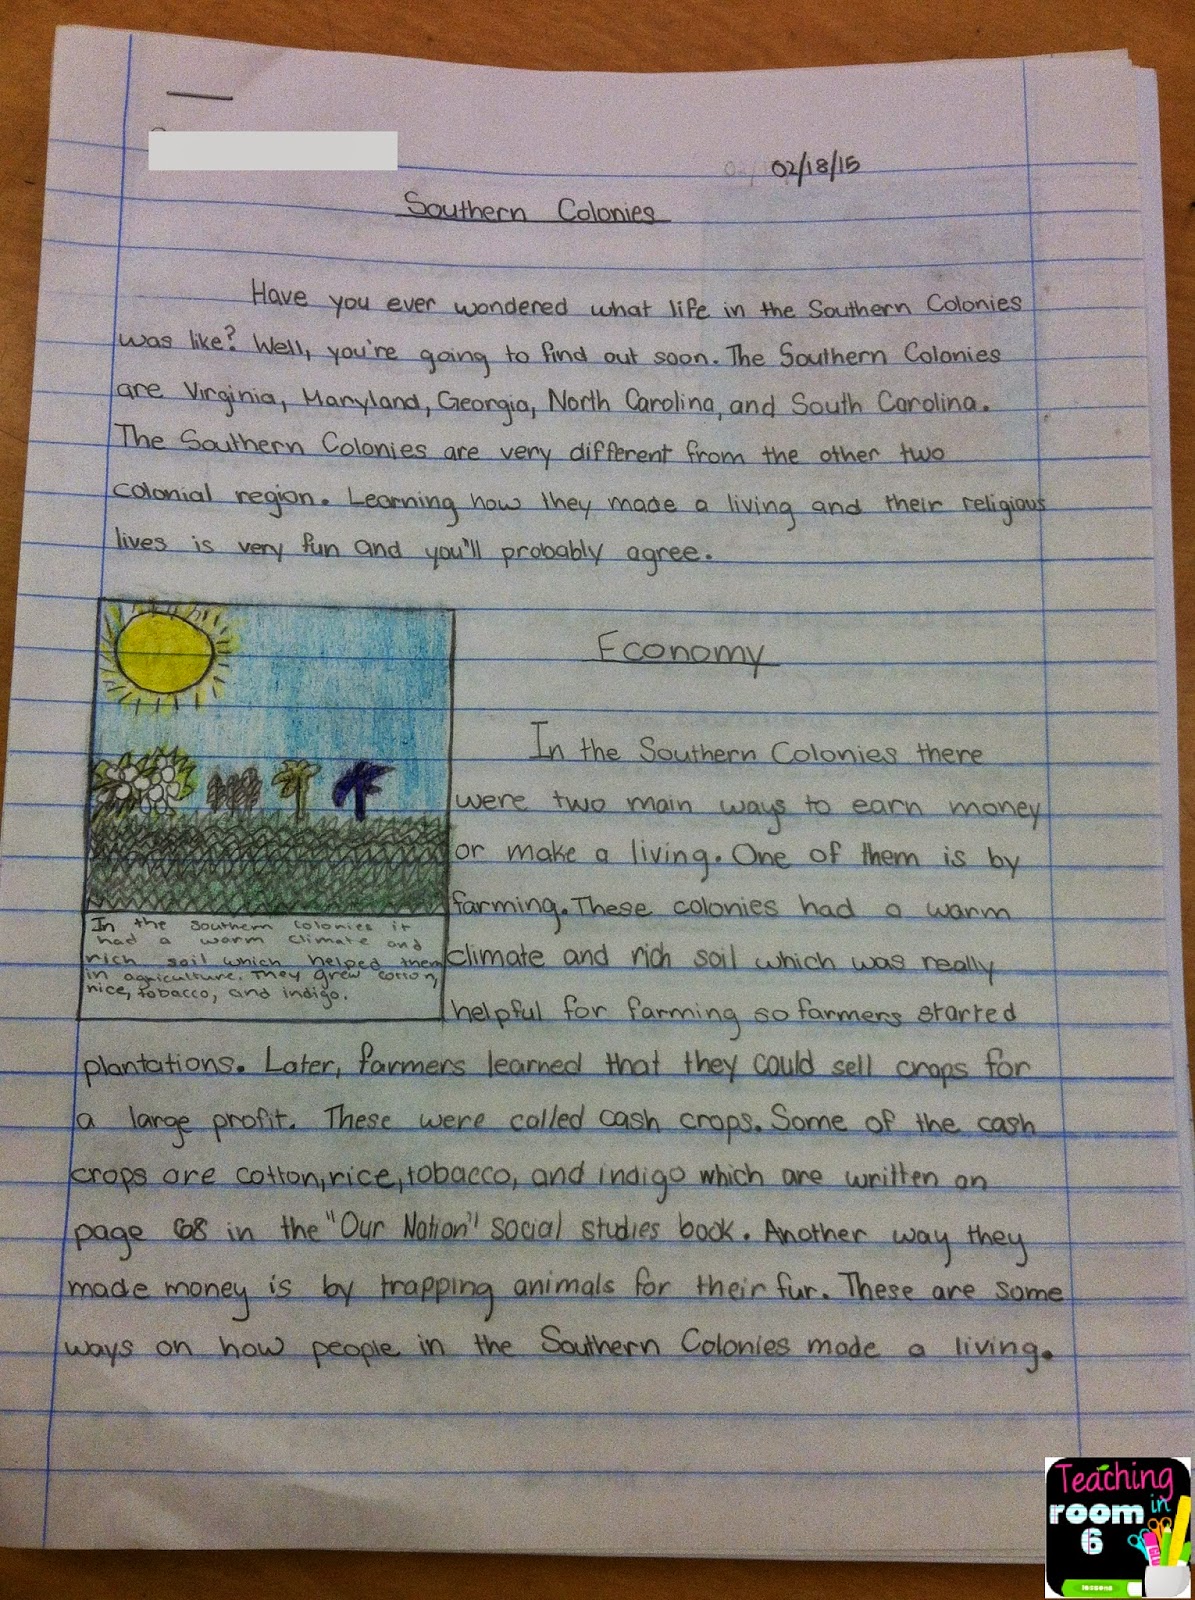 02/18/15
Southern Colonies
Have you ever wondered what life in the Southern Colonies
was like? Well, you're going to find out soon. The Southern Colonies
are Virginia, Maryland, Georgia, North Carolina, and South Carolina.
The Southern Colonies are very different from the other two
colonial region. Learning how they made a living and their religious
lives is very fun and you'll probably agree.
Economy
In the Southern Colonies there
were two main ways to earn money
or make a living. One of them is by
farming. These colonies had a warm
climate and rich soil which was really
helpful for farming so farmers started
plantations. Later, farmers learned that they could sell crops for
a large profit. These were called cash crops. Some of the cash
crops are cotton, rice, tobacco, and indigo which are written on
page 68 in the "Our Nation" social studies book. Another way they
made money is by trapping animals for their fur. These are some
ways on how people in the Southern Colonies made a living.
In the Southern Colonies it
had a warm climate and
rich soil which helped them
in agriculture. They grew cotton,
rice, tobacco, and indigo.
Teaching
in
room
6
lessons